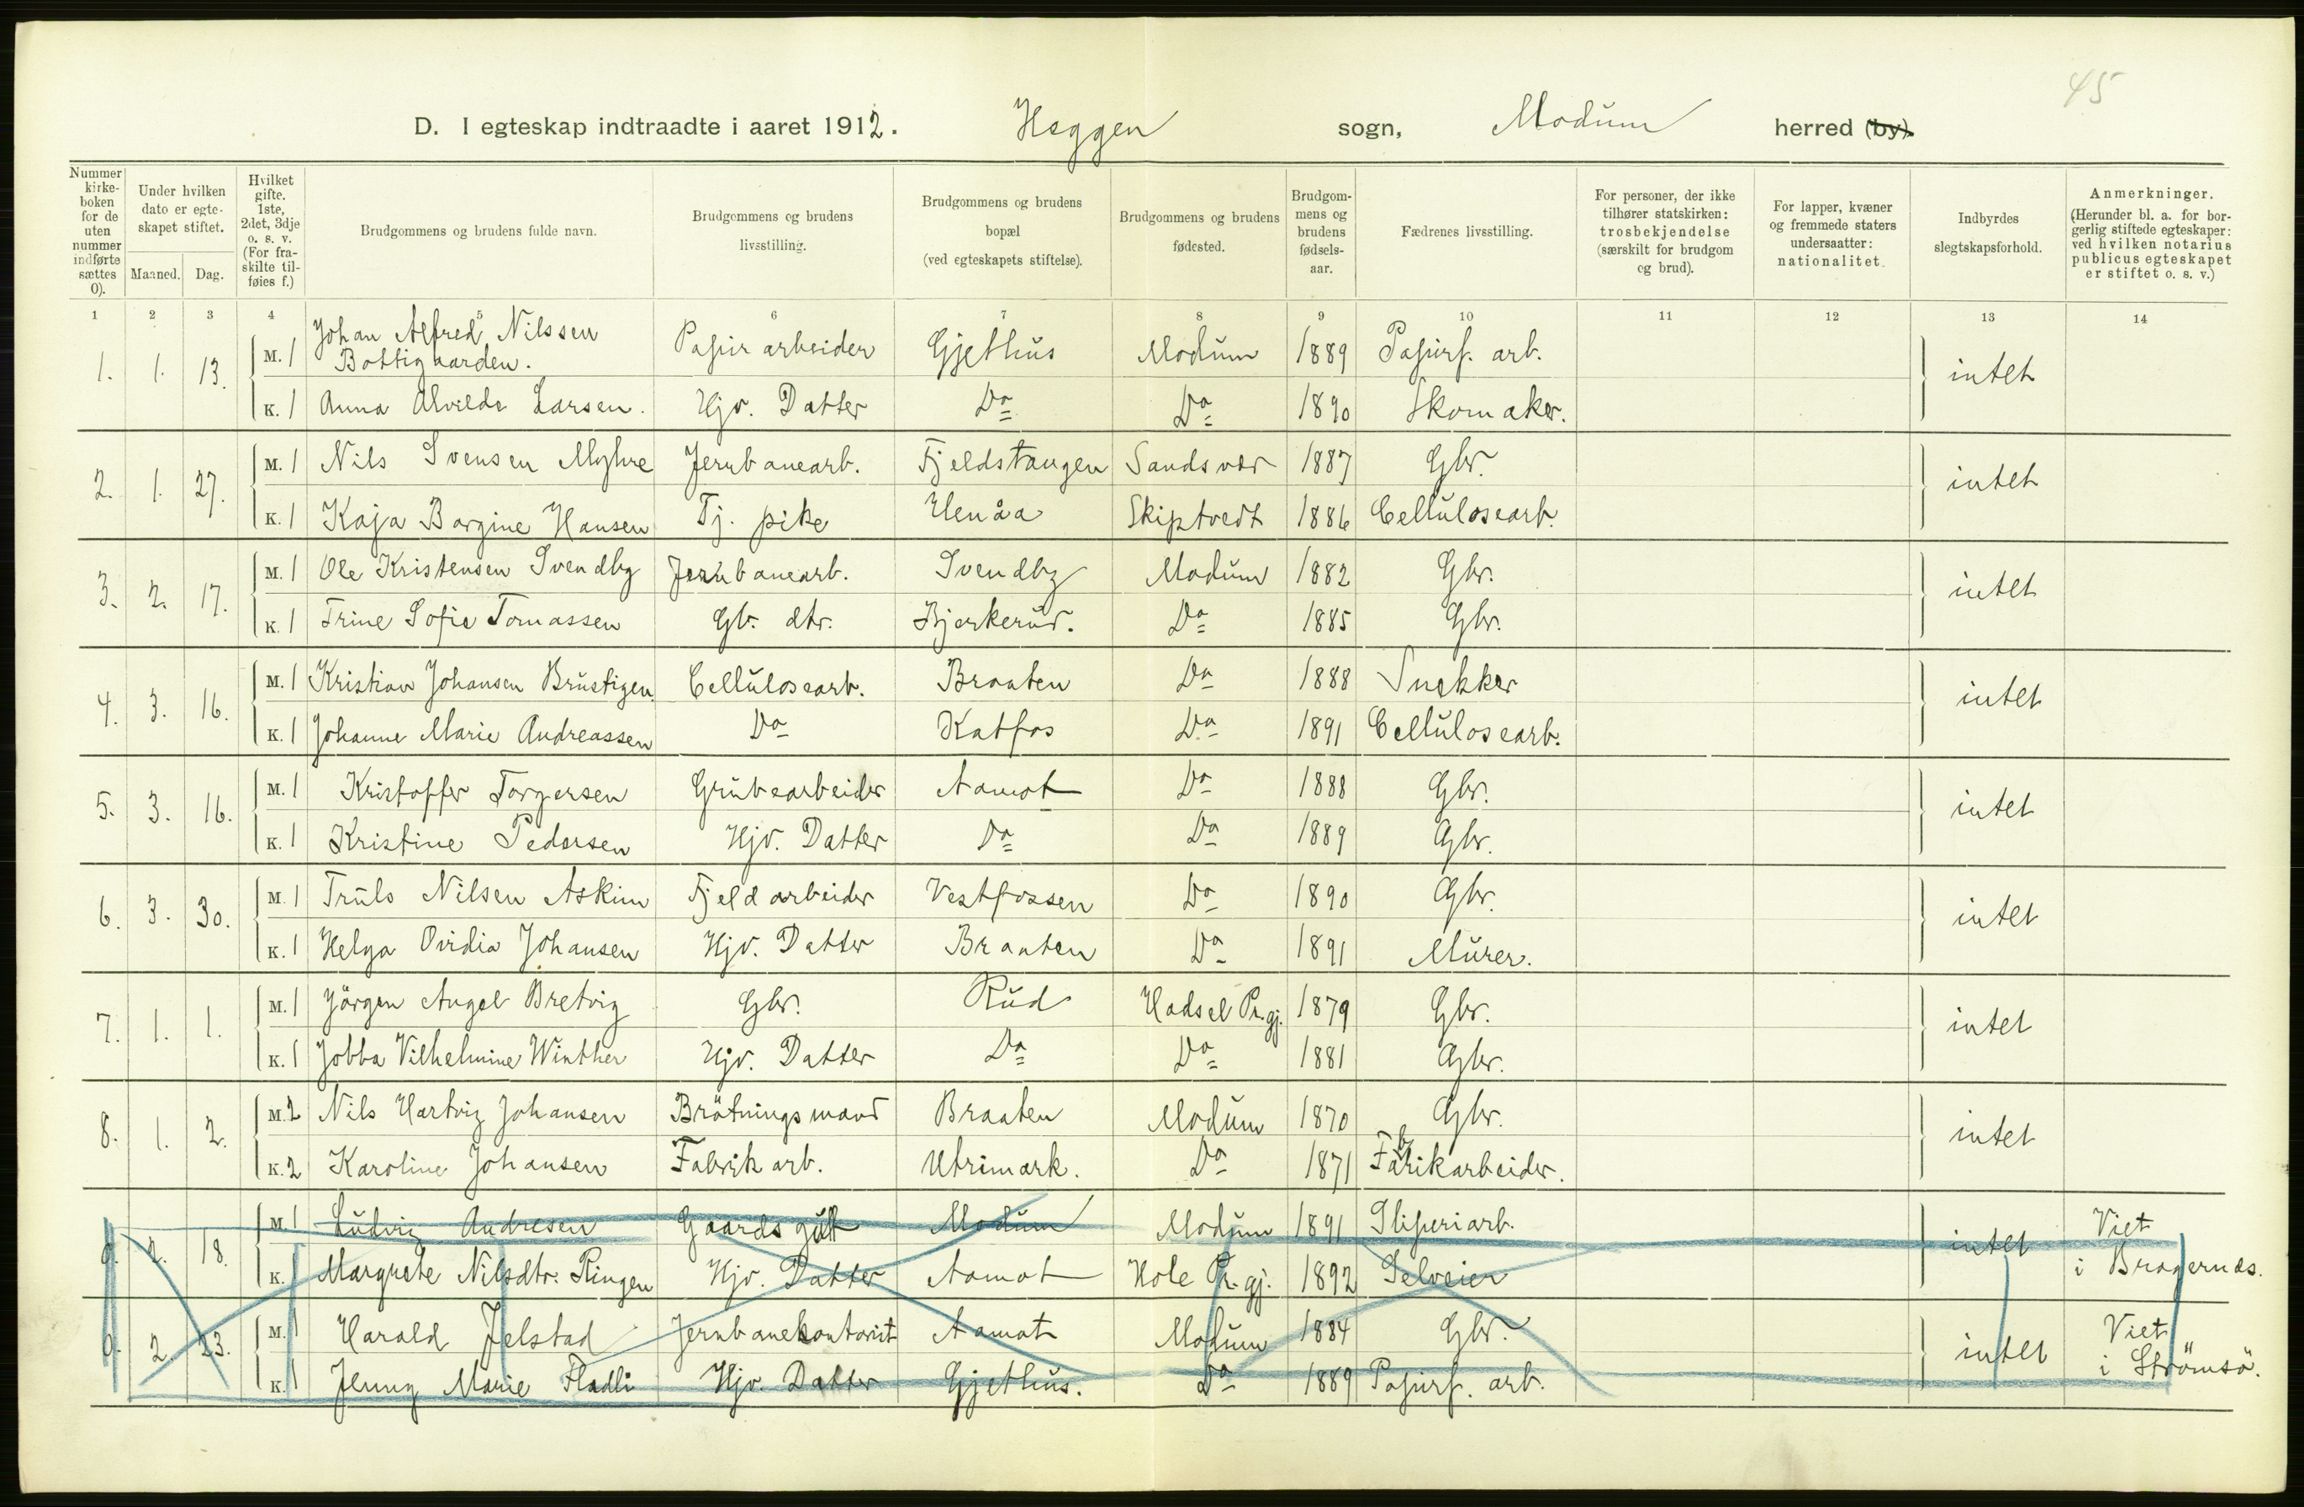 45
D. I egteskap indtraadte i aaret 1912. Heggen sogn, Modum herred (by).
Nummer kirkeboken for de uten nummer indførte sættes 0). Under hvilken dato er egteskapet stiftet. Maaned. Dag. Hvilket gifte. 1ste, 2det, 3dje o. s. v. (For fraskilte tilføies f.) Brudgommens og brudens fulde navn. Brudgommens og brudens livsstilling. Brudgommens og brudens bopæl (ved egteskapets stiftelse). Brudgommens og brudens fødested. Brudgommens og brudens fødselsaar. Fædrenes livsstilling. For personer, der ikke tilhører statskirken: trosbekjendelse (særskilt for brudgom og brud). For lapper, kvæner og fremmede staters undersaatter: nationalitet. Indbyrdes slegtskapsforhold. Anmerkninger. (Herunder bl. a. for borgerlig stiftede egteskaper: ved hvilken notarius publicus egteskapet er stiftet o. s. v.)
1 2 3 4 5 6 7 8 9 10 11 12 13 14
1. 1. 13. M. 1 Johan Alfred Nilssen Bottigaarden. Papirarbeider Gjethus Modum 1889 Papirf. arb. intet
K. 1 Anna Alvilde Larsen. Hjv. Datter Do Do 1890 Skomaker.
2. 1. 27. M. 1 Nils Svensen Myhre Jernbanearb. Fjeldstangen Sandsvær 1887 Gbr. intet
K. 1 Kaja Bargine Hansen Tj. pike Henåa Skiptvedt 1886 Cellulosearb.
3. 2. 17. M. 1 Ole Kristensen Svendby Jernbanearb. Svendby Modum 1882 Gbr. intet
K. 1 Trine Sofie Tomassen Gb. dtr. Bjerkerud. Do 1885 Gbr.
4. 3. 16. M. 1 Kristian Johansen Brustigen Cellulosearb. Braaten Do 1888 Snekker intet
K. 1 Johanne Marie Andreassen Do Katfos Do 1891 Cellulosearb.
5. 3. 16. M. 1 Kristoffer Torgersen Grubearbeider Aamot Do 1888 Gbr. intet
K. 1 Kristine Pedersen Hjv. Datter Do Do 1889 Gbr.
6. 3. 30. M. 1 Truls Nilsen Askim Fjeldarbeider Vestfossen Do 1890 Gbr. intet
K. 1 Helga Ovidia Johansen Hjv. Datter Braaten Do 1891 Murer.
7. 1. 1. M. 1 Jörgen Angel Bretvig Gbr. Rud Hadsel Pr.gj. 1879 Gbr. intet
K. 1 Jobba Vilhelmine Winther Hjv. Datter Do Do 1881 Gbr.
8. 1. 2. M. 2 Nils Hartvig Johansen Brötningsmand Braaten Modum 1870 Gbr. intet
K. 2 Karoline Johansen Fabrikarb. Utrimark. Do 1871 Fabrikarbeider.
0. 2. 18. M. 1 Ludvig Andresen Gaardsgutt Modum Modum 1891 Sliperiarb. intet Viet i Bragernæs.
K. 1 Margrete Nilsdtr. Ringen Hjv. Datter Aamot Hole Pr.gj. 1892 Selveier
0. 2. 23. M. 1 Harald Jelstad Jernbanekontorist Aamot Modum 1884 Gbr. intet Viet i Strömsö.
K. 1 Jenny Marie Fladli Hjv. Datter Gjethus. Do 1889 Papirf. arb.